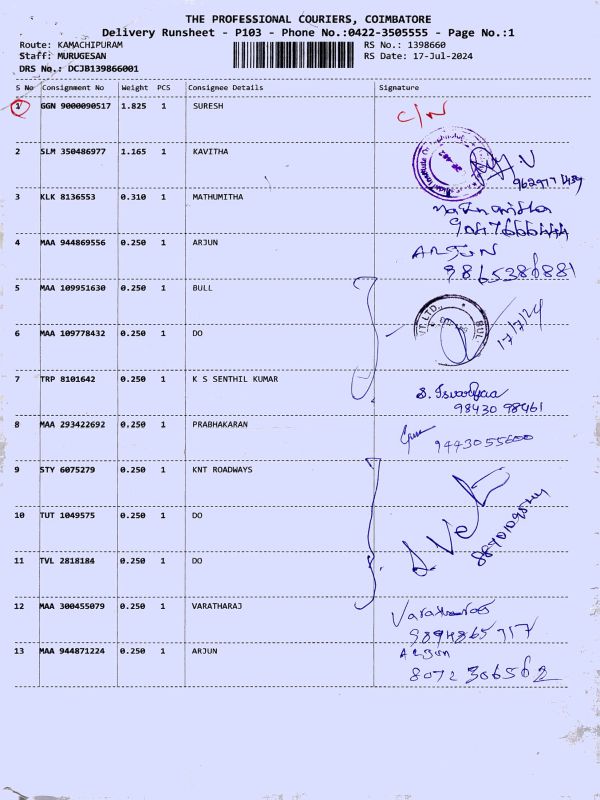 THE PROFESSIONAL COURIERS, COIMBATORE
Delivery Runsheet - P103 - Phone No.:0422-3505555 - Page No.:1
Route: KAMACHIPURAM RS No.: 1398660
Staff: MURUGESAN RS Date: 17-Jul-2024
DRS No.: DCJB139866001
S No Consignment No Weight PCS Consignee Details Signature
1 GGN 9000090517 1.825 1 SURESH C/N
2 SLM 350486977 1.165 1 KAVITHA
3 KLK 8136553 0.310 1 MATHUMITHA
4 MAA 944869556 0.250 1 ARJUN ARJUN
9865386881
5 MAA 109951630 0.250 1 BULL
6 MAA 109778432 0.250 1 DO 17/7/24
7 TRP 8101642 0.250 1 K S SENTHIL KUMAR
98430 98461
8 MAA 293422692 0.250 1 PRABHAKARAN 9443055600
9 STY 6075279 0.250 1 KNT ROADWAYS
10 TUT 1049575 0.250 1 DO
11 TVL 2818184 0.250 1 DO
12 MAA 300455079 0.250 1 VARATHARAJ
9894865717
13 MAA 944871224 0.250 1 ARJUN Arjun
8072 306562